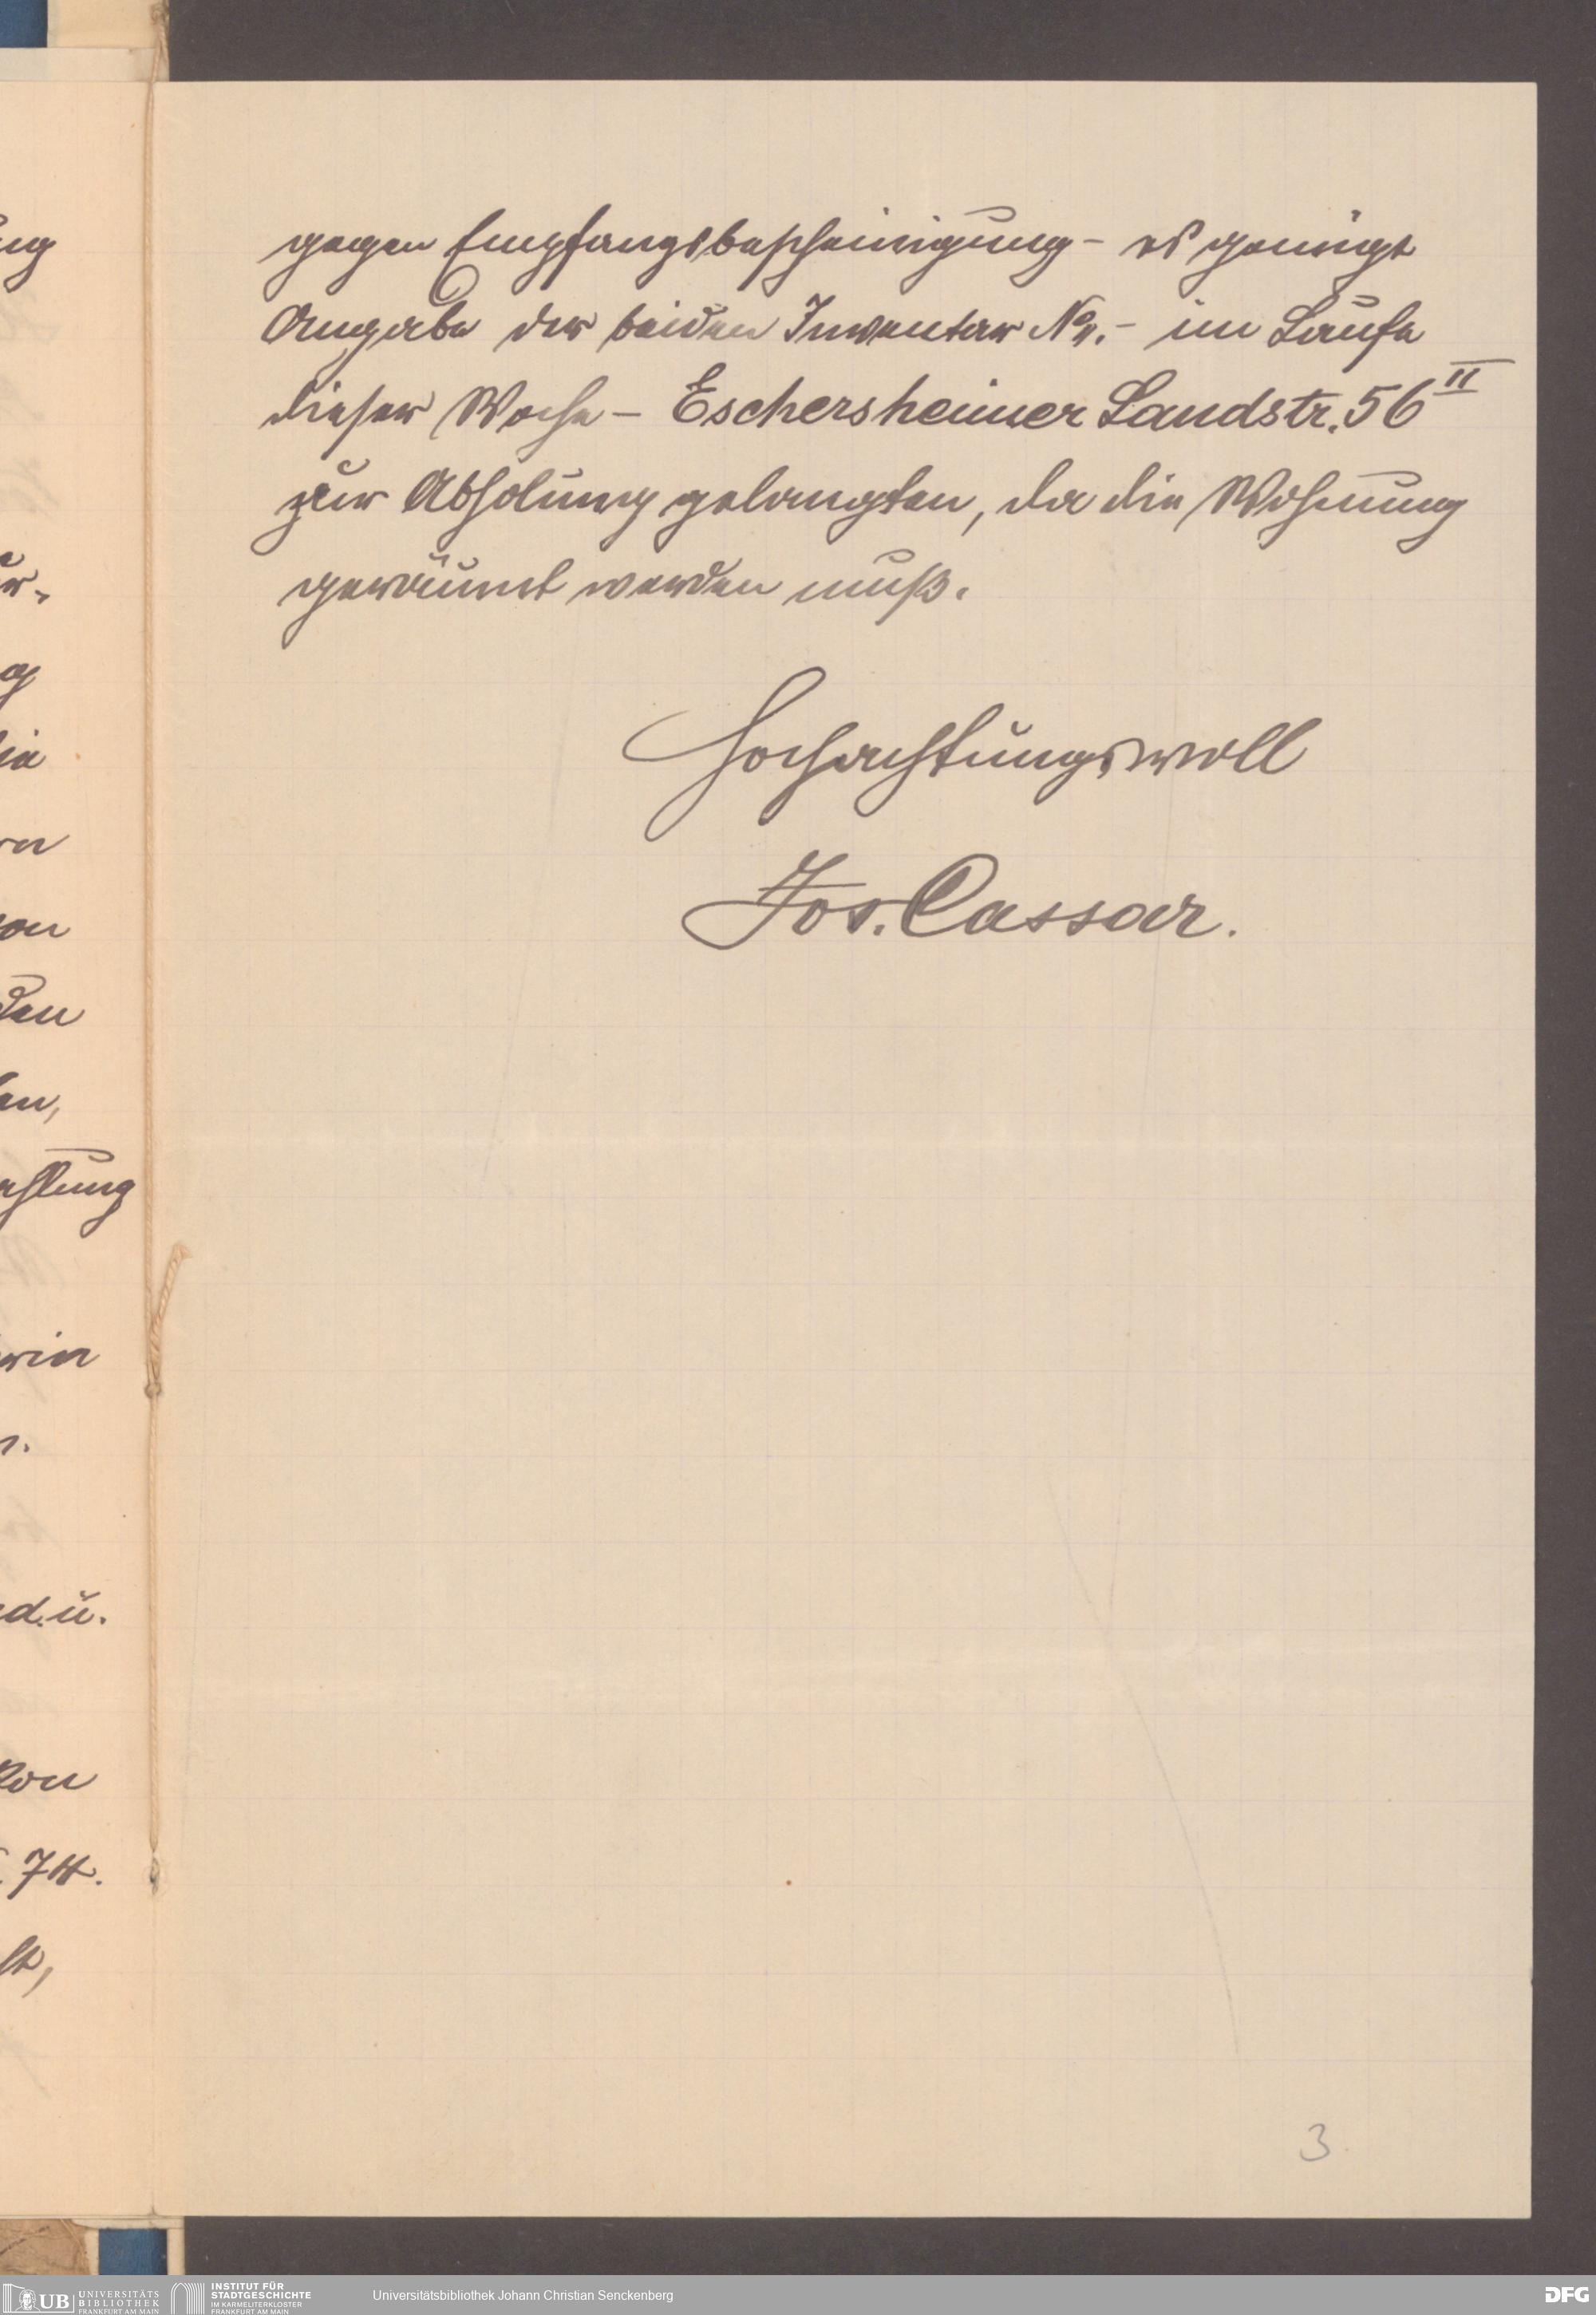 gegen Empfangsbescheinigung – es genügt
Angabe der beiden Inventar No. – im Laufe
dieser Woche – Eschersheimer Landstr. 56 II
zur Abholung gelangten, da die Wohnung
geräumt werden muß.
Hochachtungsvoll
Jos. Cassar.
3
ung
ahlung
d. ü.
UB UNIVERSITÄTS BIBLIOTHEK FRANKFURT AM MAIN
INSTITUT FÜR STADTGESCHICHTE IM KARMELITERKLOSTER FRANKFURT AM MAIN
Universitätsbibliothek Johann Christian Senckenberg
DFG